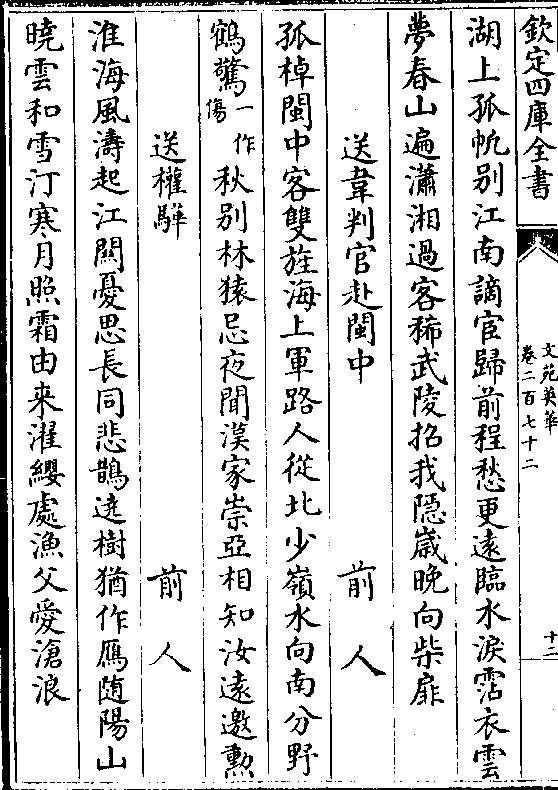 欽定四庫全書
文苑英華
卷二百七十二
十二
湖上孤帆别江南謫宦歸前程愁更遠臨水淚霑衣雲
夢春山遍瀟湘過客稀武陵招我隠歲晚向柴扉
送韋判官赴閩中 前人
孤棹閩中客雙旌海上軍路人從北少嶺水向南分野
鶴驚一作傷秋别林猿忌夜聞漢家崇亞相知汝遠邀勲
送權驊 前人
淮海風濤起江闗憂思長同悲鵲遶樹猶作鴈随陽山
曉雲和雪汀寒月照霜由来濯纓處漁父愛滄浪